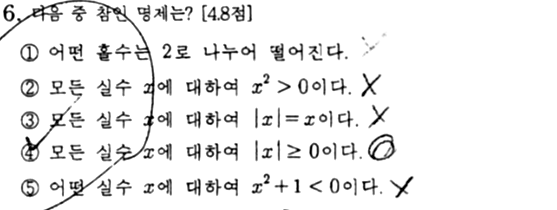 6. 다음 중 참인 명제는? [4.8점]
① 어떤 홀수는 2로 나누어 떨어진다.
② 모든 실수 x에 대하여 x² > 0이다. X
③ 모든 실수 x에 대하여 |x| = x이다. X
④ 모든 실수 x에 대하여 |x| ≥ 0이다. O
⑤ 어떤 실수 x에 대하여 x² + 1 < 0이다. X